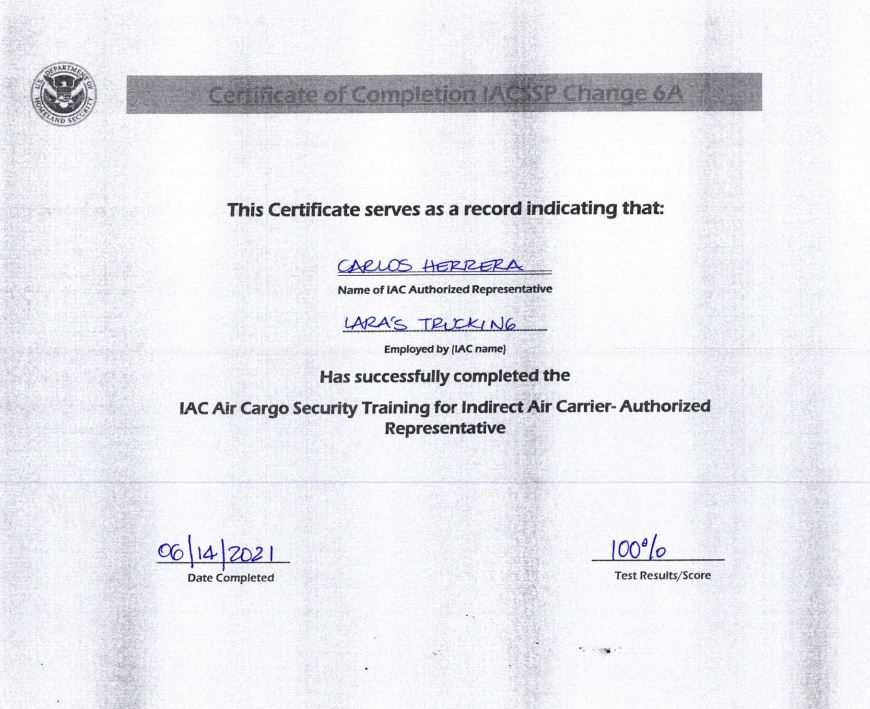 U.S. DEPARTMENT OF HOMELAND SECURITY
Certificate of Completion IACSSP Change 6A
This Certificate serves as a record indicating that:
CARLOS HERRERA
Name of IAC Authorized Representative
LARA'S TRUCKING
Employed by (IAC name)
Has successfully completed the
IAC Air Cargo Security Training for Indirect Air Carrier- Authorized
Representative
06/14/2021
Date Completed
100%
Test Results/Score